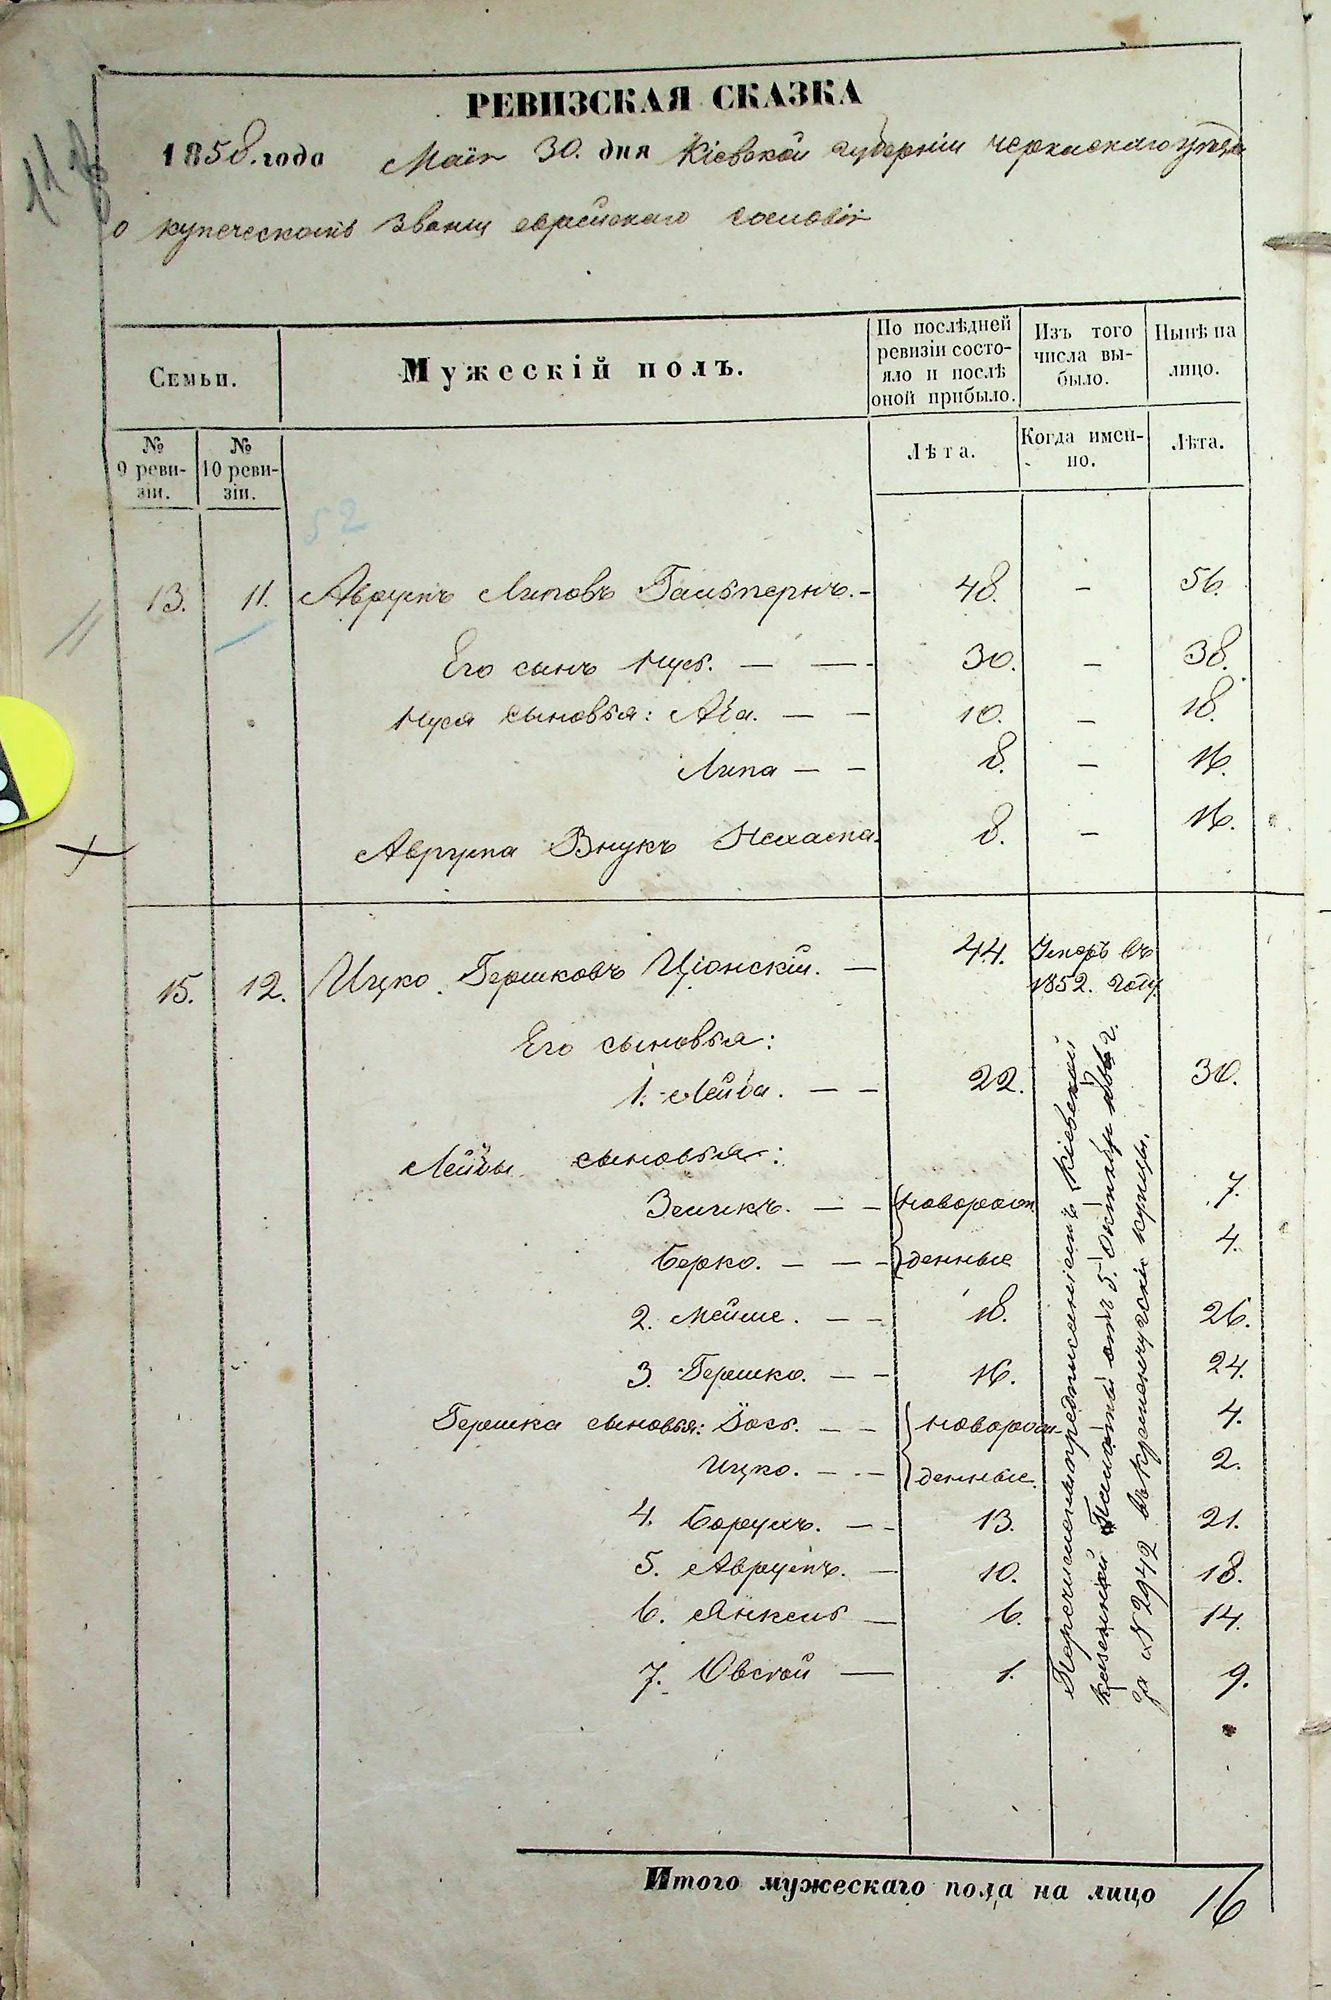 РЕВИЗСКАЯ СКАЗКА
1858. года Маія 30. дня Кіевской губерніи черкаскаго уѣзда
о купеческомъ званіи еврейскаго сословія
Семьи.
Мужескій полъ.
По послѣдней ревизіи состояло и послѣ оной прибыло.
Изъ того числа выбыло.
Нынѣ на лицо.
№ 9 ревизіи.
№ 10 ревизіи.
Лѣта.
Когда именно.
Лѣта.
52
13. 11. Аврумъ Липовъ Гальпернъ. - 48. - 56.
Его сынъ Нусь. — — 30. - 38.
Нуся сыновья: Аба. — — 10. - 18.
Липа — — 8. - 16.
Аврума Внукъ 8. - 16.
15. 12. Ицко Гершковъ Ціонскій. — 44. Умеръ въ 1852. году.
Его сыновья:
1. Лейба. — — 22. 30.
Лейбы сыновья:
Зеликъ. — — новорож 7.
Берко. — — — денные 4.
2. Мейше. — — 18. 26.
3. Гершко. — — 16. 24.
Гершка сыновья: Іось. — — новорож- 4.
Ицко. — — денные. 2.
4. Борухъ. — — 13. 21.
5. Аврумъ. — 10. 18.
6. Янкель — 6. 14.
7. Овсѣй — 1. 9.
Перечислены предписаніемъ Кіевской
казенной Палаты отъ 5. Октября г.
за № 2942 въ кременчугскіе купцы.
Итого мужескаго пола на лицо 16